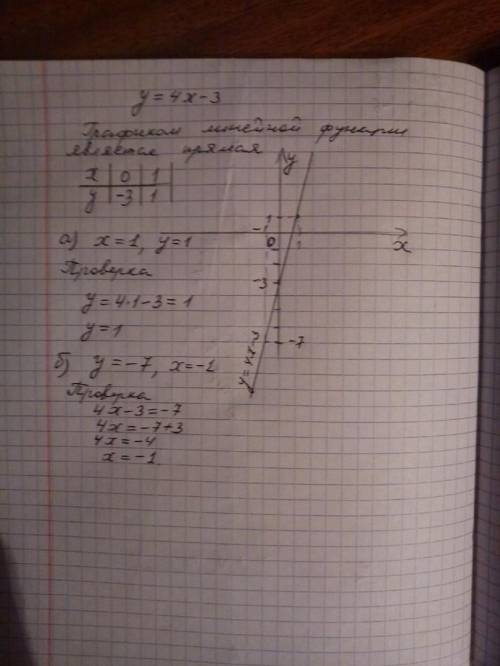 y = 4x-3
Графиком линейной функции
является прямая
x | 0 | 1 |
y | -3 | 1 |
а) x=1, y=1
Проверка
y=4·1-3=1
y=1
б) y=-7, x=-1
Проверка
4x-3=-7
4x=-7+3
4x=-4
x=-1.
y
1
-1
0
1
x
-3
-7
y=4x-3